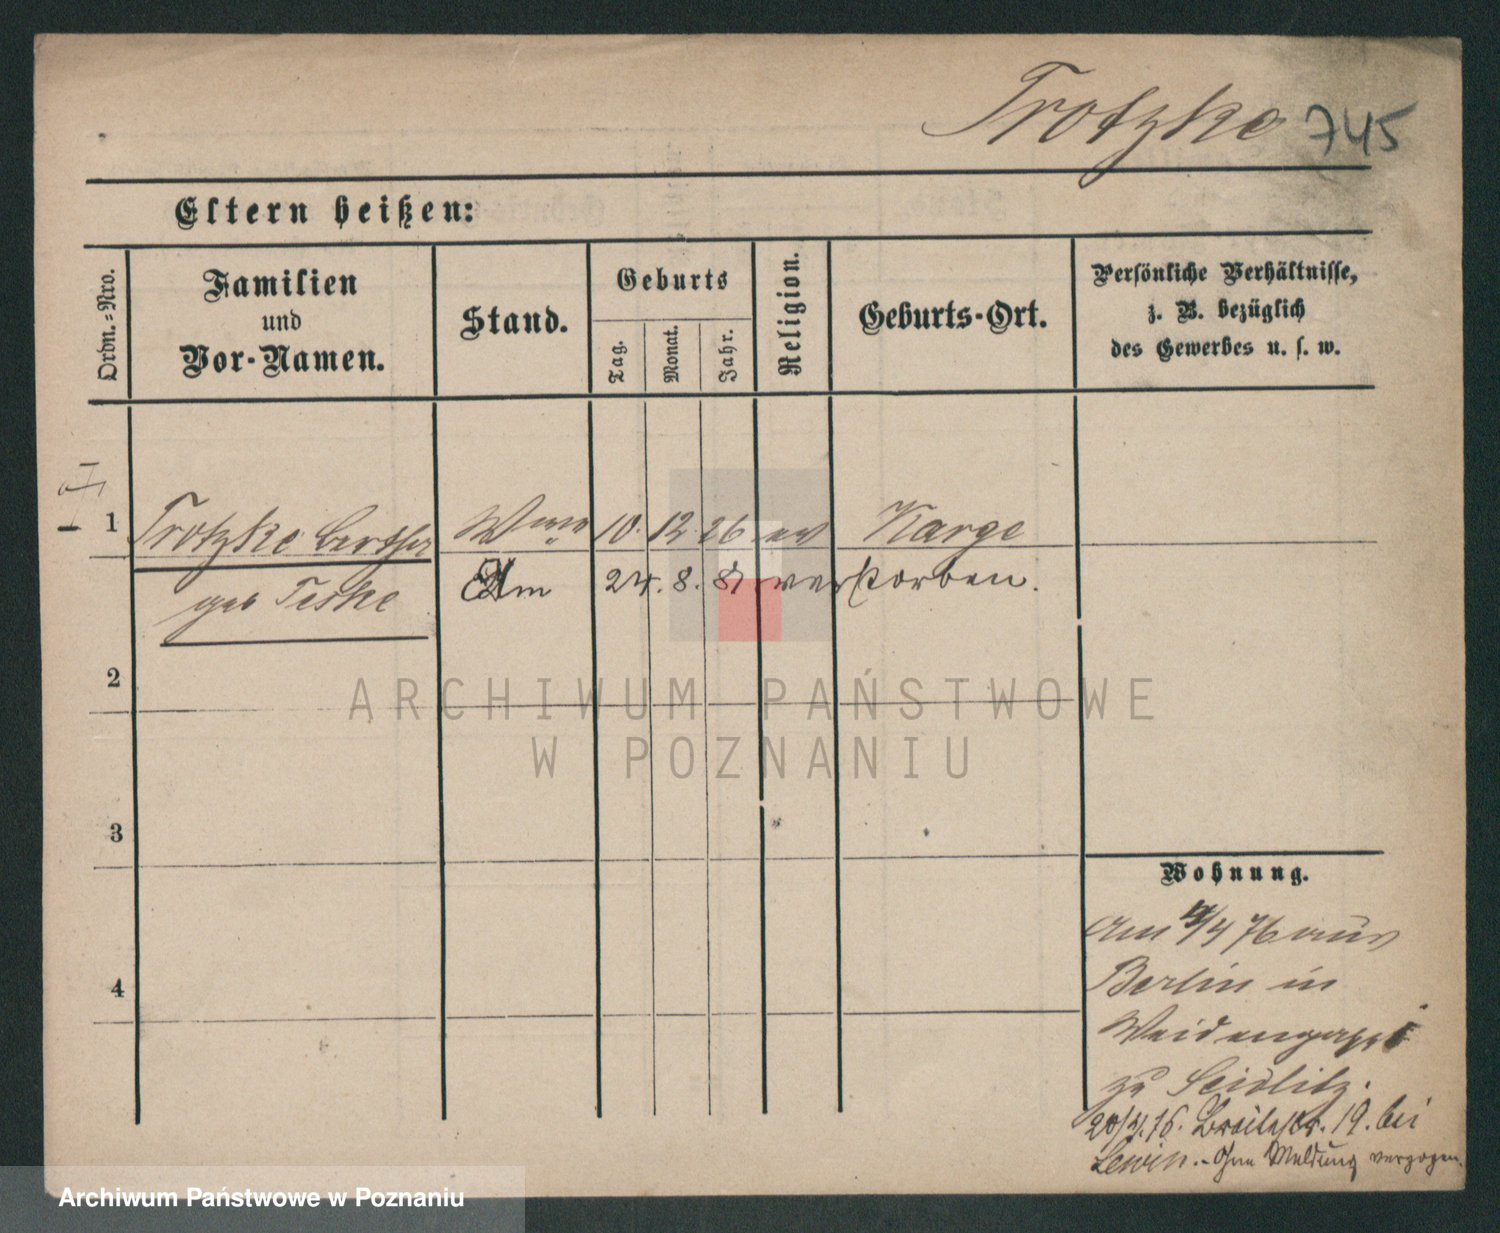 Trotzke 745
Eltern heißen:
Ordn.-Nro.
Familien
und
Vor-Namen.
Stand.
Geburts
Tag.
Monat.
Jahr.
Religion.
Geburts-Ort.
Persönliche Verhältnisse,
z. B. bezüglich
des Gewerbes u. s. w.
1 Trotzke Bertha Wwe 10. 12. 26 ev Karge
geb Teske Am 24. 8. 81 verstorben.
2
3
4
ARCHIWUM PAŃSTWOWE
W POZNANIU
Wohnung.
Am 4/4 76 aus
Berlin in
Weidengasse
zu Seidlitz.
20/4.76. Breitestr. 19. bei
Lewin. - Ohne Meldung verzogen.
Archiwum Państwowe w Poznaniu